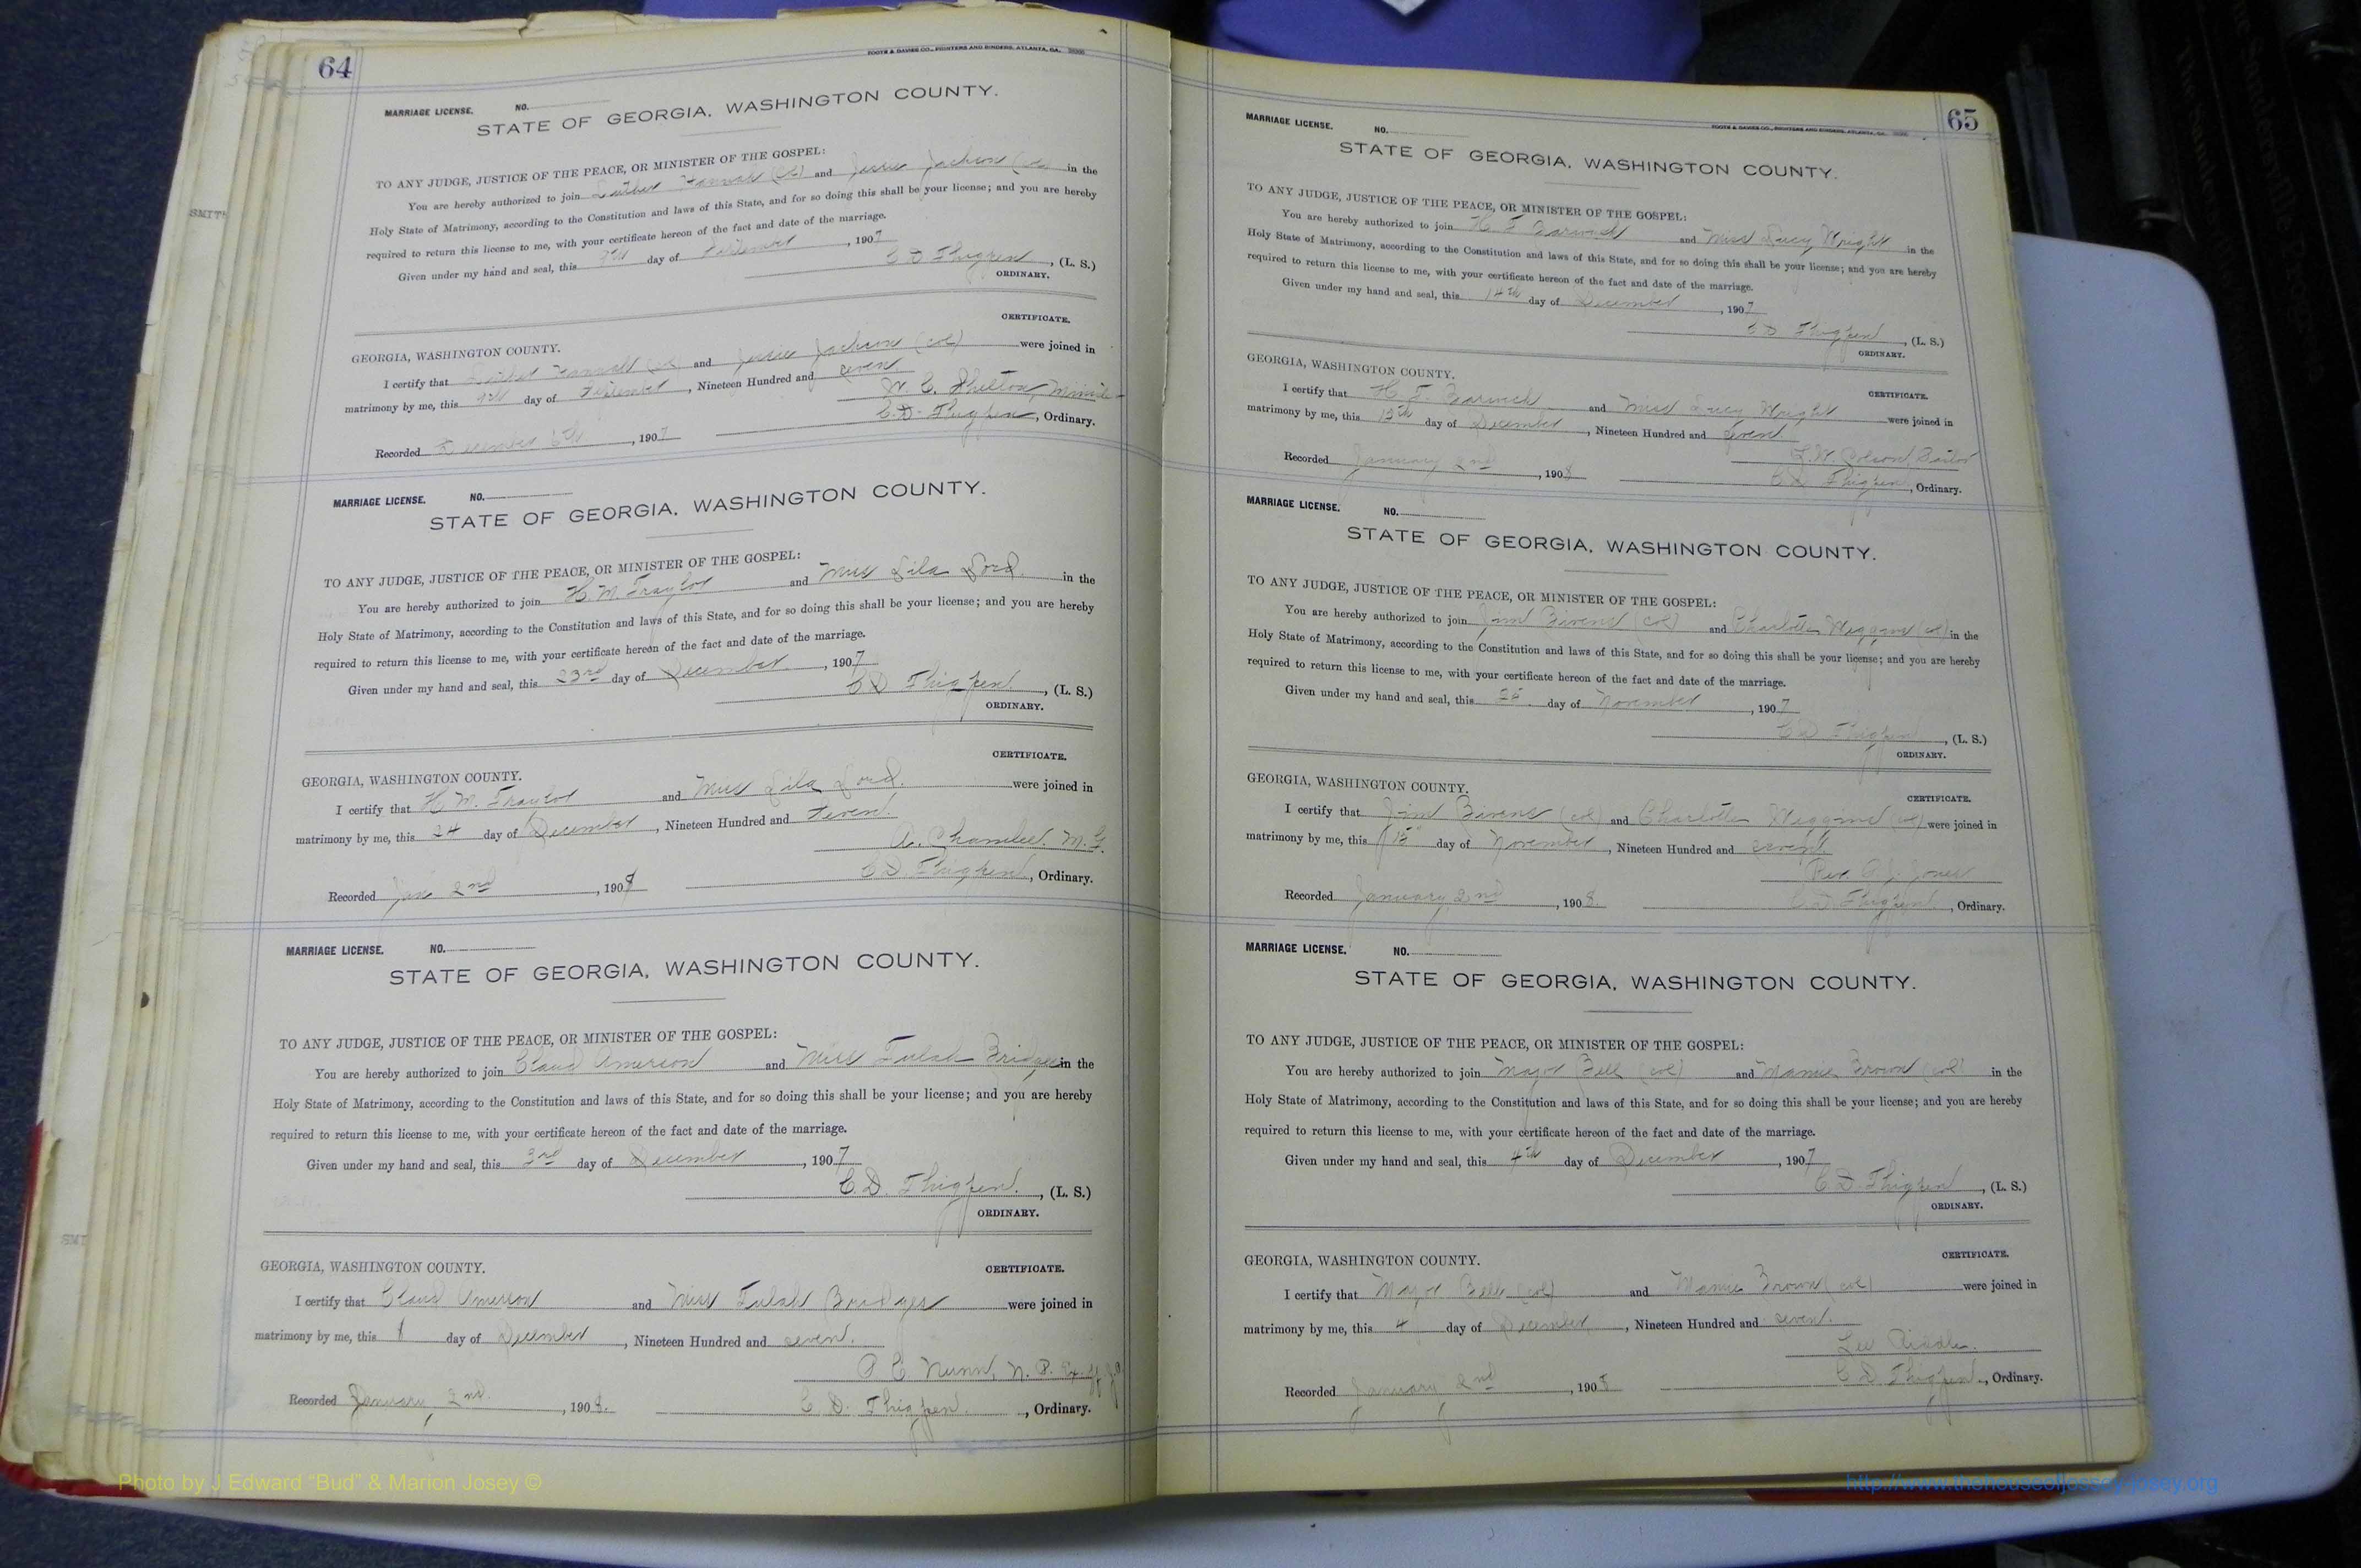 64
FOOTE & DAVIES CO., PRINTERS AND BINDERS, ATLANTA, GA.
MARRIAGE LICENSE. NO.
STATE OF GEORGIA, WASHINGTON COUNTY.
TO ANY JUDGE, JUSTICE OF THE PEACE, OR MINISTER OF THE GOSPEL:
You are hereby authorized to join Luther Hannah (col) and Jessie Jackson (col) in the
Holy State of Matrimony, according to the Constitution and laws of this State, and for so doing this shall be your license; and you are hereby
required to return this license to me, with your certificate hereon of the fact and date of the marriage.
Given under my hand and seal, this day of September, 1907
C D Thigpen, (L. S.)
ORDINARY.
CERTIFICATE.
GEORGIA, WASHINGTON COUNTY.
I certify that Luther Hannah (col) and Jessie Jackson (col) were joined in
matrimony by me, this day of September, Nineteen Hundred and seven.
W. C. Shelton, Minister
Recorded December 6th, 1907 C. D. Thigpen, Ordinary.
MARRIAGE LICENSE. NO.
STATE OF GEORGIA, WASHINGTON COUNTY.
TO ANY JUDGE, JUSTICE OF THE PEACE, OR MINISTER OF THE GOSPEL:
You are hereby authorized to join H. M. Traylor and Miss Lila Lord in the
Holy State of Matrimony, according to the Constitution and laws of this State, and for so doing this shall be your license; and you are hereby
required to return this license to me, with your certificate hereon of the fact and date of the marriage.
Given under my hand and seal, this 23rd day of December, 1907
C D Thigpen, (L. S.)
ORDINARY.
CERTIFICATE.
GEORGIA, WASHINGTON COUNTY.
I certify that H. M. Traylor and Miss Lila Lord. were joined in
matrimony by me, this 24 day of December, Nineteen Hundred and seven.
A. Chamlee. M. G.
Recorded Jan 2nd, 1908 C. D. Thigpen, Ordinary.
MARRIAGE LICENSE. NO.
STATE OF GEORGIA, WASHINGTON COUNTY.
TO ANY JUDGE, JUSTICE OF THE PEACE, OR MINISTER OF THE GOSPEL:
You are hereby authorized to join Claud Amerson and Miss Tulah Bridges in the
Holy State of Matrimony, according to the Constitution and laws of this State, and for so doing this shall be your license; and you are hereby
required to return this license to me, with your certificate hereon of the fact and date of the marriage.
Given under my hand and seal, this 3rd day of December, 1907
C. D. Thigpen., (L. S.)
ORDINARY.
CERTIFICATE.
GEORGIA, WASHINGTON COUNTY.
I certify that Claud Amerson and Miss Tulah Bridges were joined in
matrimony by me, this 8 day of December, Nineteen Hundred and seven.
P C Nunn, N. P. Ex. off J.P.
Recorded January, 2nd., 1908. C. D. Thigpen., Ordinary.
65
FOOTE & DAVIES CO., PRINTERS AND BINDERS, ATLANTA, GA.
MARRIAGE LICENSE. NO.
STATE OF GEORGIA, WASHINGTON COUNTY.
TO ANY JUDGE, JUSTICE OF THE PEACE, OR MINISTER OF THE GOSPEL:
You are hereby authorized to join H. F. Barwick and Miss Lucy Wright in the
Holy State of Matrimony, according to the Constitution and laws of this State, and for so doing this shall be your license; and you are hereby
required to return this license to me, with your certificate hereon of the fact and date of the marriage.
Given under my hand and seal, this 14th day of December, 1907
C D Thigpen, (L. S.)
ORDINARY.
GEORGIA, WASHINGTON COUNTY.
CERTIFICATE.
I certify that H. F. Barwick and Miss Lucy Wright were joined in
matrimony by me, this 15th day of December, Nineteen Hundred and seven.
Colson,
Recorded January 2nd, 1908 C D Thigpen, Ordinary.
MARRIAGE LICENSE. NO.
STATE OF GEORGIA, WASHINGTON COUNTY.
TO ANY JUDGE, JUSTICE OF THE PEACE, OR MINISTER OF THE GOSPEL:
You are hereby authorized to join Jim Bivens (col) and Charlotte Wiggins (col) in the
Holy State of Matrimony, according to the Constitution and laws of this State, and for so doing this shall be your license; and you are hereby
required to return this license to me, with your certificate hereon of the fact and date of the marriage.
Given under my hand and seal, this day of November, 1907
C D Thigpen, (L. S.)
ORDINARY.
GEORGIA, WASHINGTON COUNTY.
CERTIFICATE.
I certify that Jim Bivens (col) and Charlotte Wiggins (col) were joined in
matrimony by me, this day of November, Nineteen Hundred and seven.
Rev. A. J. Jones
Recorded January 2nd, 1908. C. D. Thigpen, Ordinary.
MARRIAGE LICENSE. NO.
STATE OF GEORGIA, WASHINGTON COUNTY.
TO ANY JUDGE, JUSTICE OF THE PEACE, OR MINISTER OF THE GOSPEL:
You are hereby authorized to join Major Bell (col) and Mamie Brown (col) in the
Holy State of Matrimony, according to the Constitution and laws of this State, and for so doing this shall be your license; and you are hereby
required to return this license to me, with your certificate hereon of the fact and date of the marriage.
Given under my hand and seal, this 4th day of December, 1907
C. D. Thigpen, (L. S.)
ORDINARY.
CERTIFICATE.
GEORGIA, WASHINGTON COUNTY.
I certify that Major Bell (col) and Mamie Brown (col) were joined in
matrimony by me, this 4 day of December, Nineteen Hundred and seven.
Lee Riddle.
Recorded January 2nd, 1908 C D Thigpen., Ordinary.
Photo by J Edward "Bud" & Marion Josey ©
http://www.thehouseofjossey-josey.org